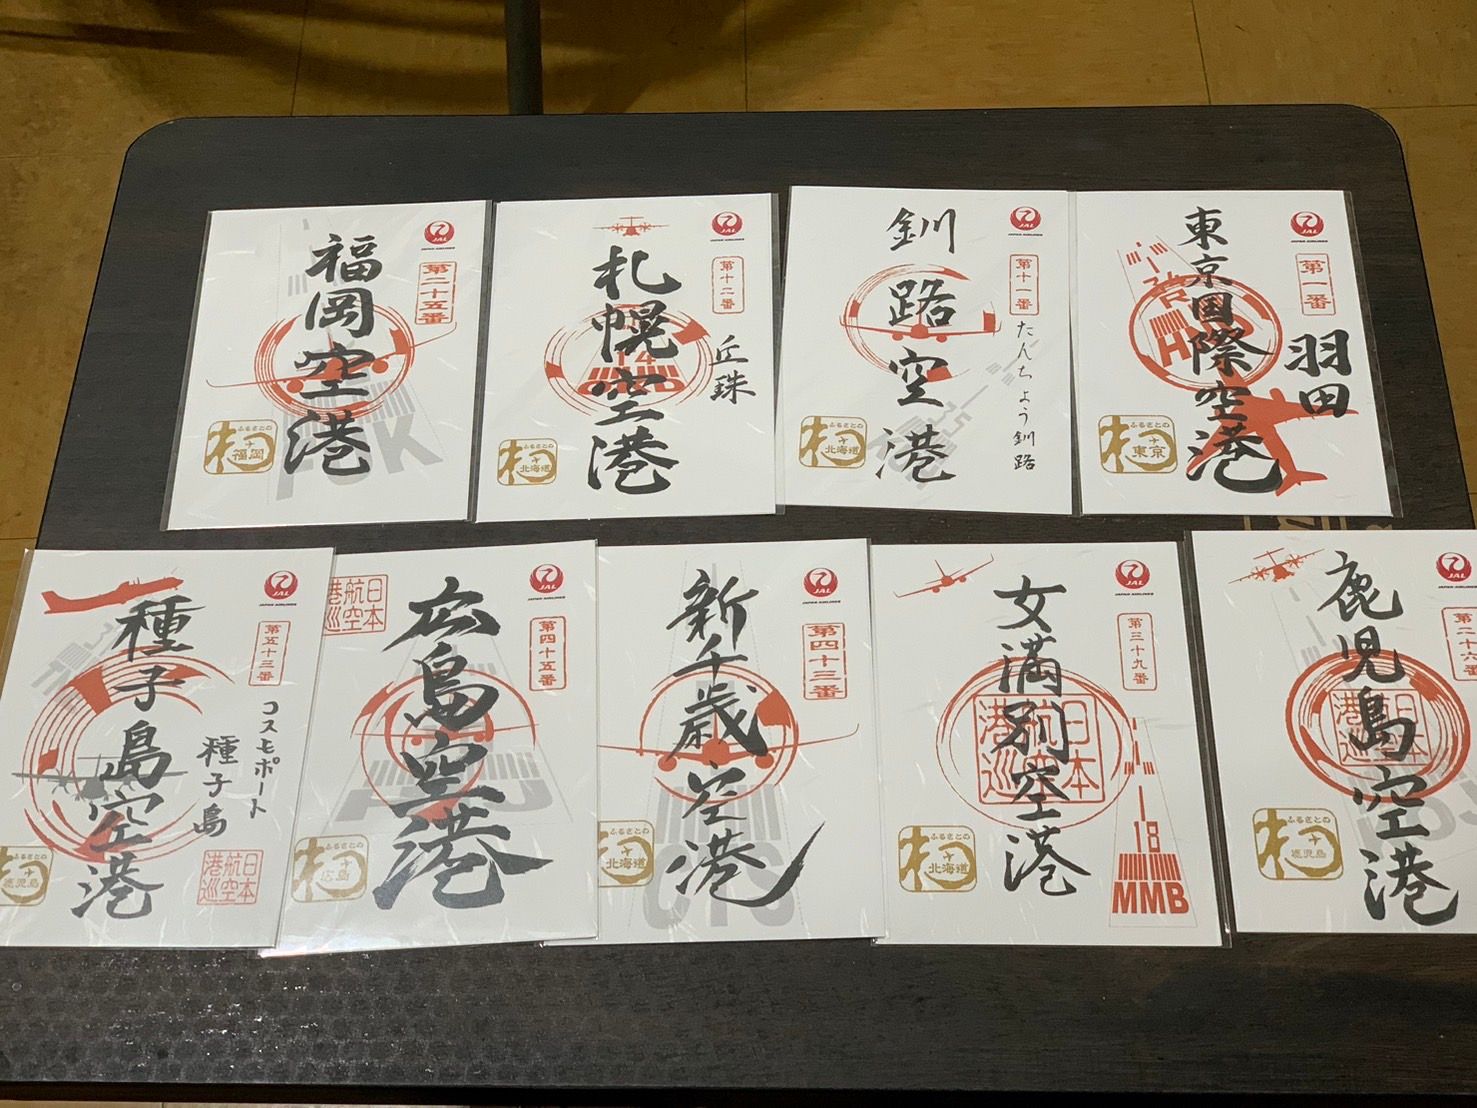 福岡空港
JAL
JAPAN AIRLINES
第二十五番
ふるさとの
福岡
FUK
札幌空港
丘珠
JAL
JAPAN AIRLINES
第十二番
14
ふるさとの
北海道
釧路空港
JAL
JAPAN AIRLINES
第十一番
たんちょう釧路
ふるさとの
北海道
東京国際空港
羽田
JAL
JAPAN AIRLINES
第一番
ふるさとの
東京
種子島空港
JAL
JAPAN AIRLINES
第五十三番
コスモポート
種子島
鹿児島
日本航空港巡
広島空港
日本航空港巡
JAL
JAPAN AIRLINES
第四十五番
ふるさとの
広島
新千歳空港
JAL
JAPAN AIRLINES
第四十三番
ふるさとの
北海道
CTS
女満別空港
JAL
JAPAN AIRLINES
第三十九番
日本航空港巡
ふるさとの
北海道
18
MMB
鹿児島空港
JAL
JAPAN AIRLINES
第二十六番
日本航空港巡
ふるさとの
鹿児島